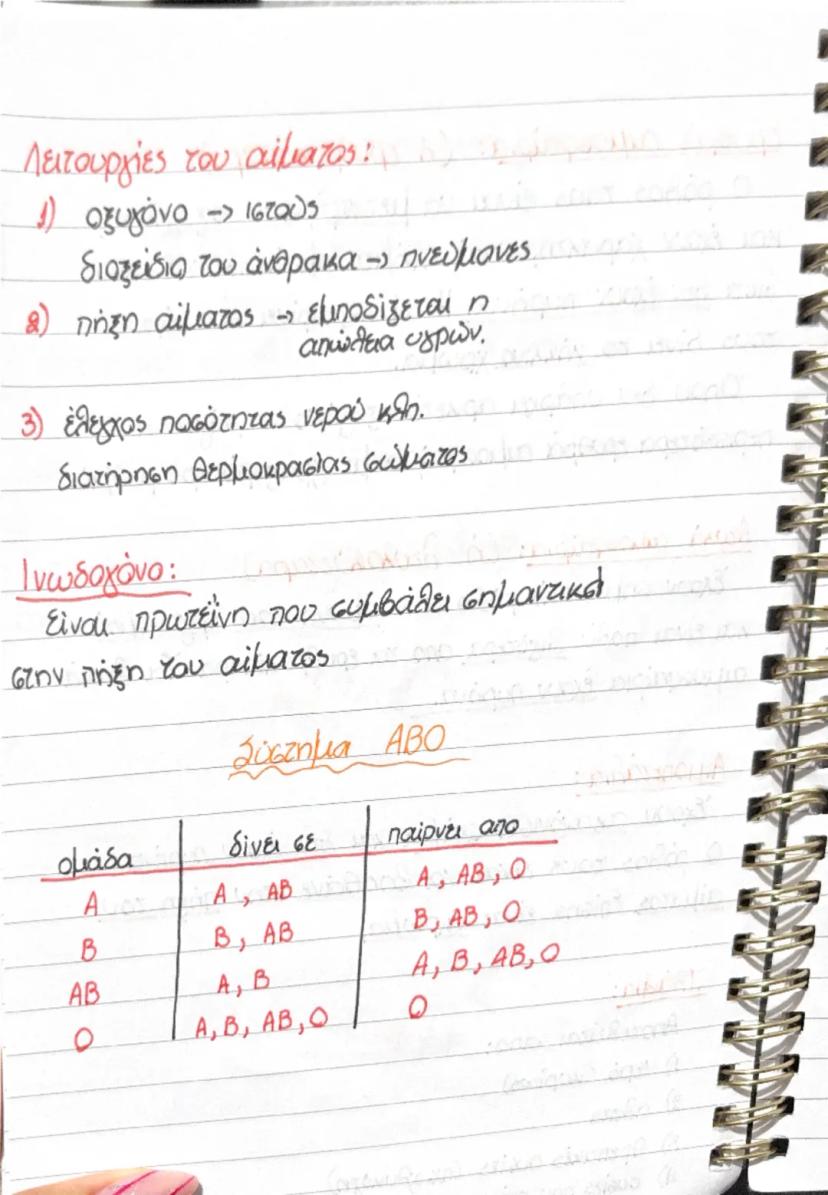 Λειτουργίες του αίματος:
1) οξυγόνο → ιστούς
διοξείδιο του άνθρακα → πνεύμονες
2) πήξη αίματος → εμποδίζεται η
απώλεια υγρών.
3) έλεγχος ποσότητας νερού κλπ.
διατήρηση θερμοκρασίας σώματος
Ινωδογόνο:
Είναι πρωτεΐνη που συμβάλει σημαντικά
στην πήξη του αίματος
Σύστημα ΑΒΟ
ομάδα δίνει σε παίρνει απο
Α Α, ΑΒ Α, ΑΒ, Ο
Β Β, ΑΒ Β, ΑΒ, Ο
ΑΒ Α, Β Α, Β, ΑΒ, Ο
Ο Α, Β, ΑΒ, Ο Ο